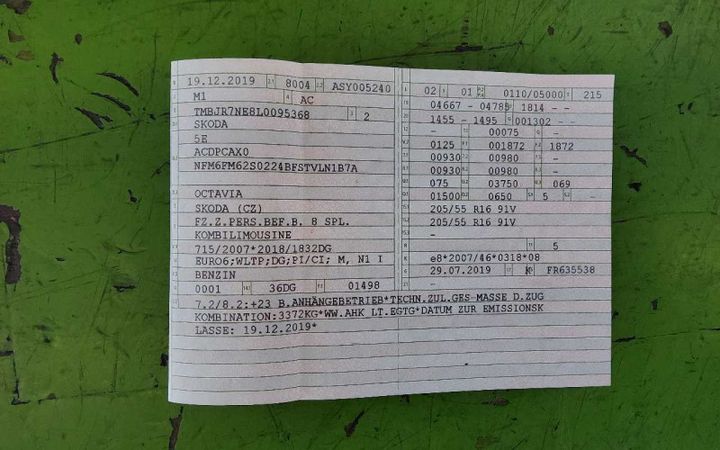 19.12.2019 8004 ASY005240
M1 AC
TMBJR7NE8L0095368 2
SKODA
5E
ACDPCAX0
NFM6FM62S0224BFSTVLN1B7A
OCTAVIA
SKODA (CZ)
FZ.Z.PERS.BEF.B. 8 SPL.
KOMBILIMOUSINE
715/2007*2018/1832DG
EURO6;WLTP;DG;PI/CI; M, N1 I
BENZIN
0001 36DG 01498
7.2/8.2:+23 B.ANHÄNGEBETRIEB*TECHN.ZUL.GES-MASSE D.ZUG
KOMBINATION:3372KG*WW.AHK LT.EGTG*DATUM ZUR EMISSIONSK
LASSE: 19.12.2019*
02 01 0110/05000 215
04667 - 04785 1814 - -
1455 - 1495 001302 - -
- 00075 -
0125 001872 1872
00930 00980 -
00930 00980 -
075 03750 069
01500 0650 5 -
205/55 R16 91V
205/55 R16 91V
-
- 5
e8*2007/46*0318*08
29.07.2019 K FR635538
-